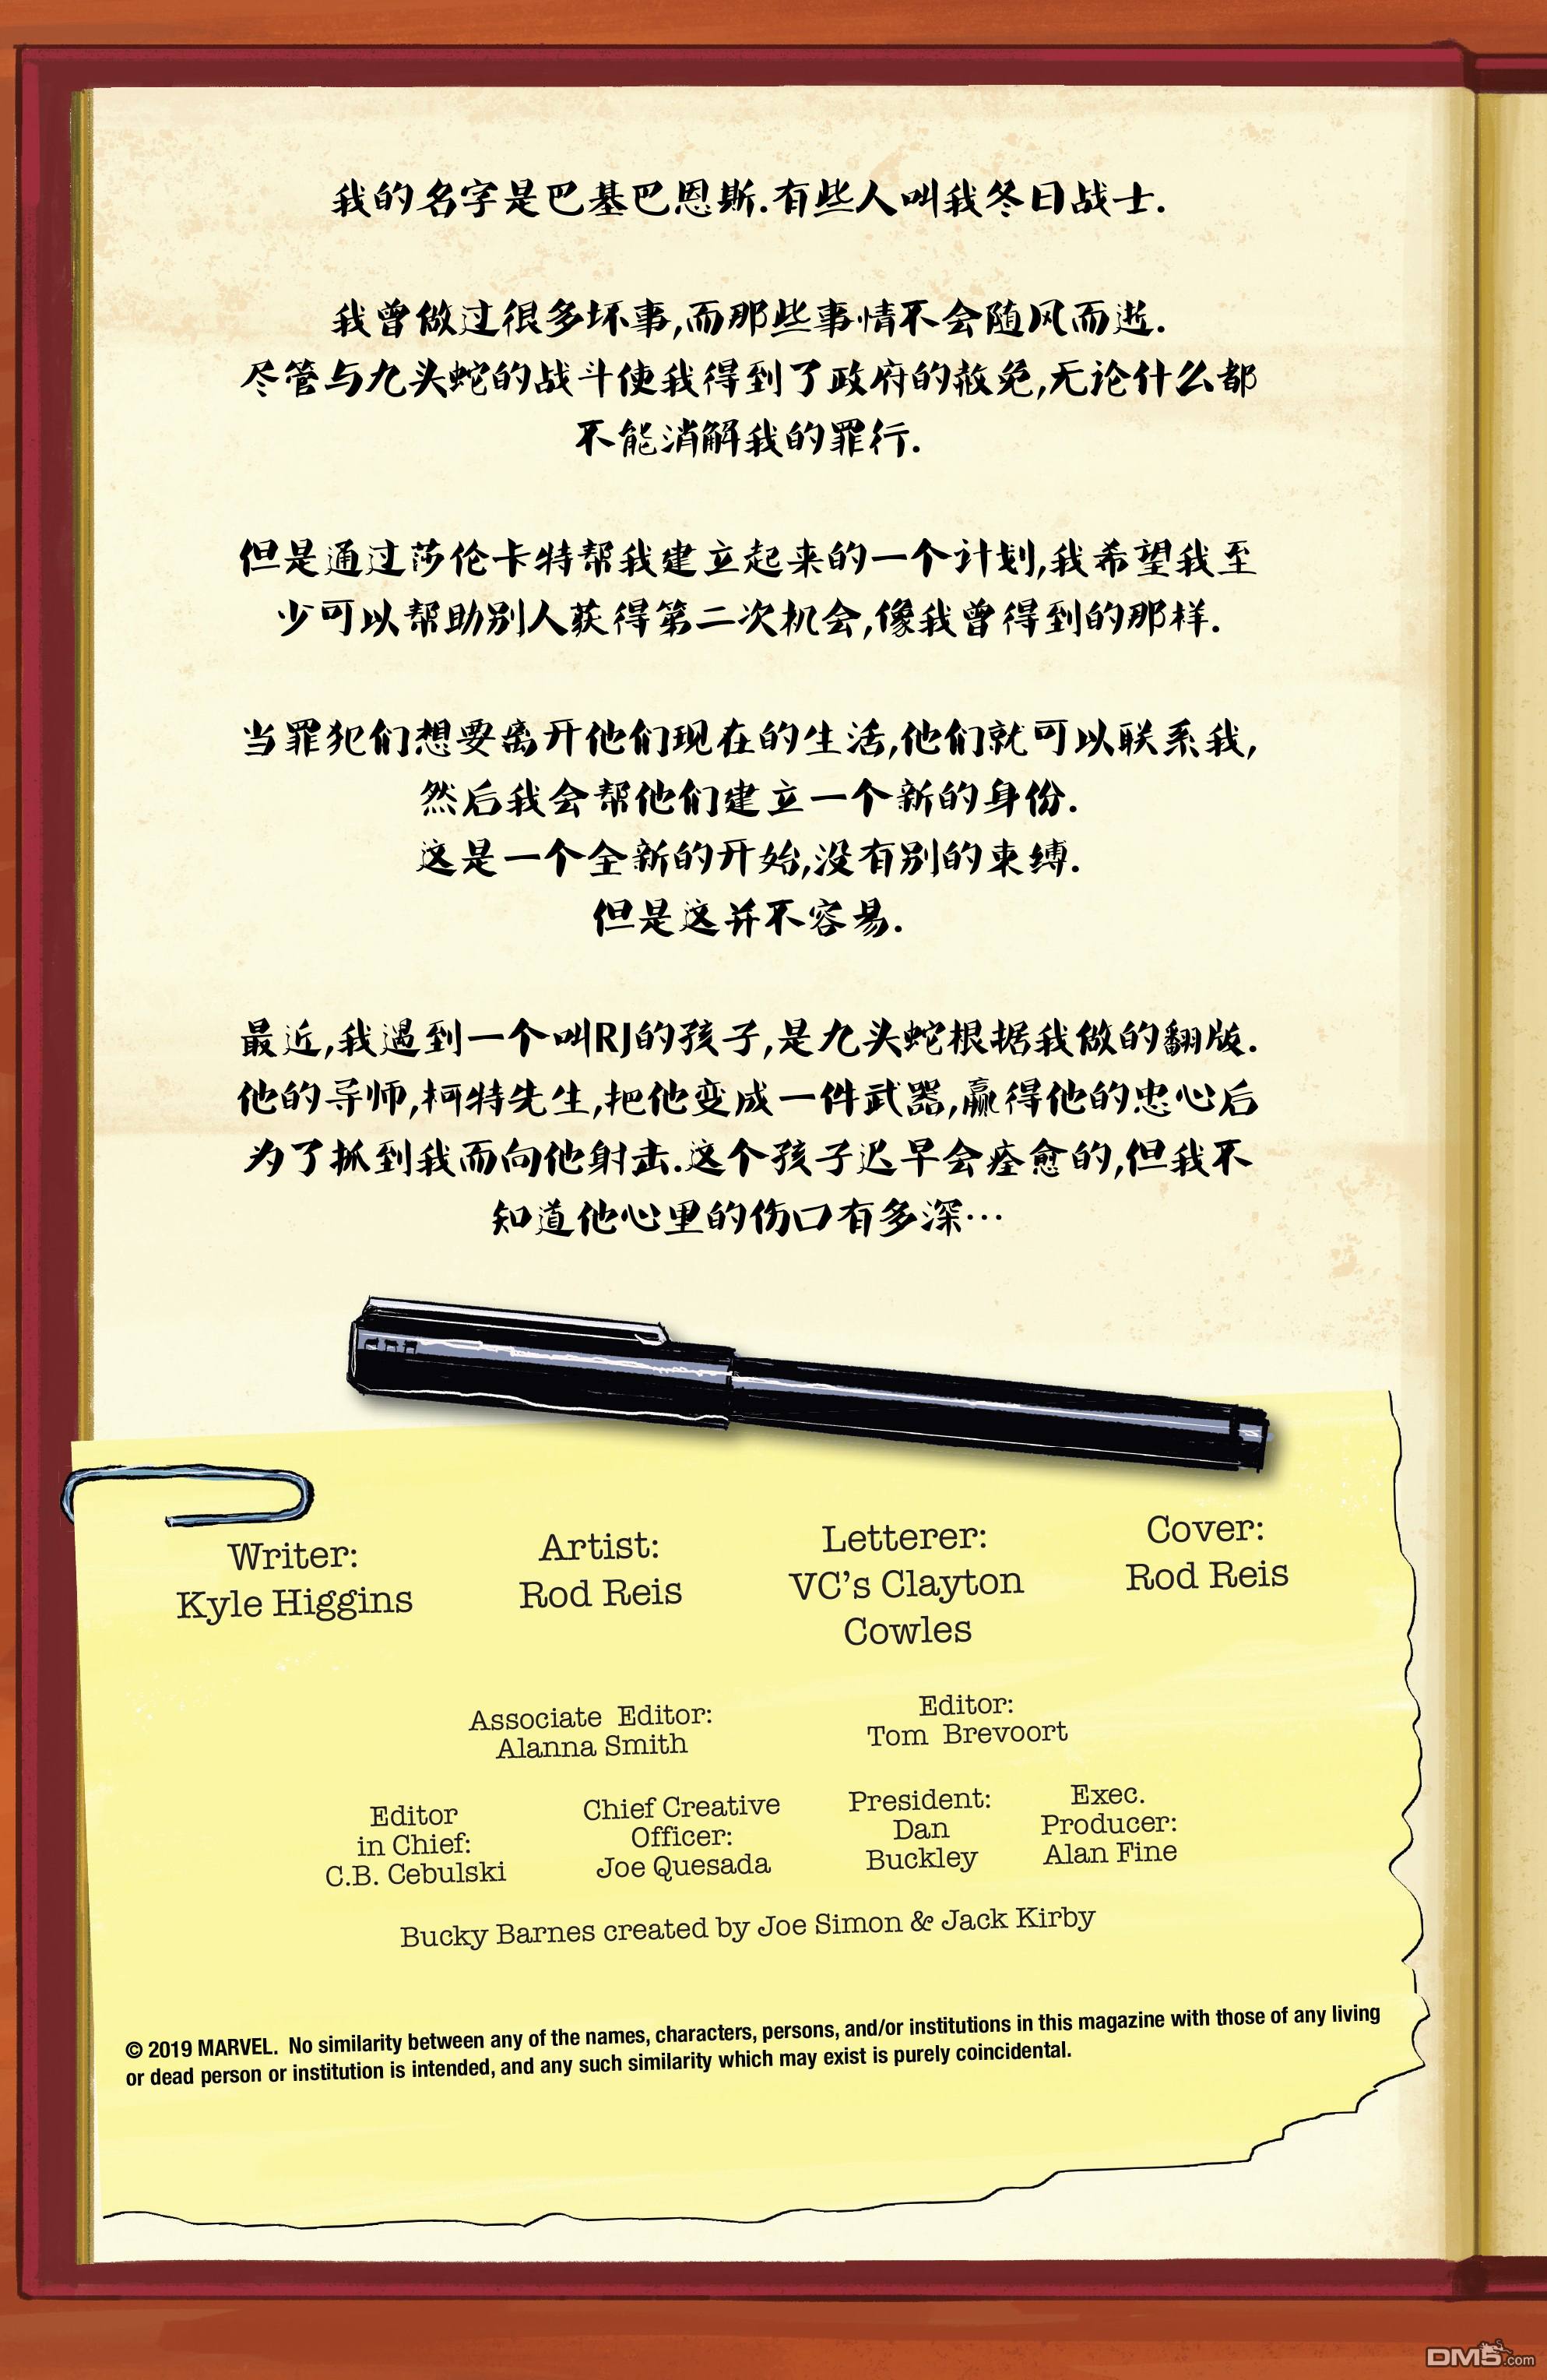 我的名字是巴基巴恩斯.有些人叫我冬日战士.
我曾做过很多坏事,而那些事情不会随风而逝.
尽管与九头蛇的战斗使我得到了政府的赦免,无论什么都
不能消解我的罪行.
但是通过莎伦卡特帮我建立起来的一个计划,我希望我至
少可以帮助别人获得第二次机会,像我曾得到的那样.
当罪犯们想要离开他们现在的生活,他们就可以联系我,
然后我会帮他们建立一个新的身份.
这是一个全新的开始,没有别的束缚.
但是这并不容易.
最近,我遇到一个叫RJ的孩子,是九头蛇根据我做的翻版.
他的导师,柯特先生,把他变成一件武器,赢得他的忠心后
为了抓到我而向他射击.这个孩子迟早会痊愈的,但我不
知道他心里的伤口有多深…
Writer:
Kyle Higgins
Artist:
Rod Reis
Letterer:
VC's Clayton
Cowles
Cover:
Rod Reis
Associate Editor:
Alanna Smith
Editor:
Tom Brevoort
Editor
in Chief:
C.B. Cebulski
Chief Creative
Officer:
Joe Quesada
President:
Dan
Buckley
Exec.
Producer:
Alan Fine
Bucky Barnes created by Joe Simon & Jack Kirby
© 2019 MARVEL. No similarity between any of the names, characters, persons, and/or institutions in this magazine with those of any living
or dead person or institution is intended, and any such similarity which may exist is purely coincidental.
DM5.com